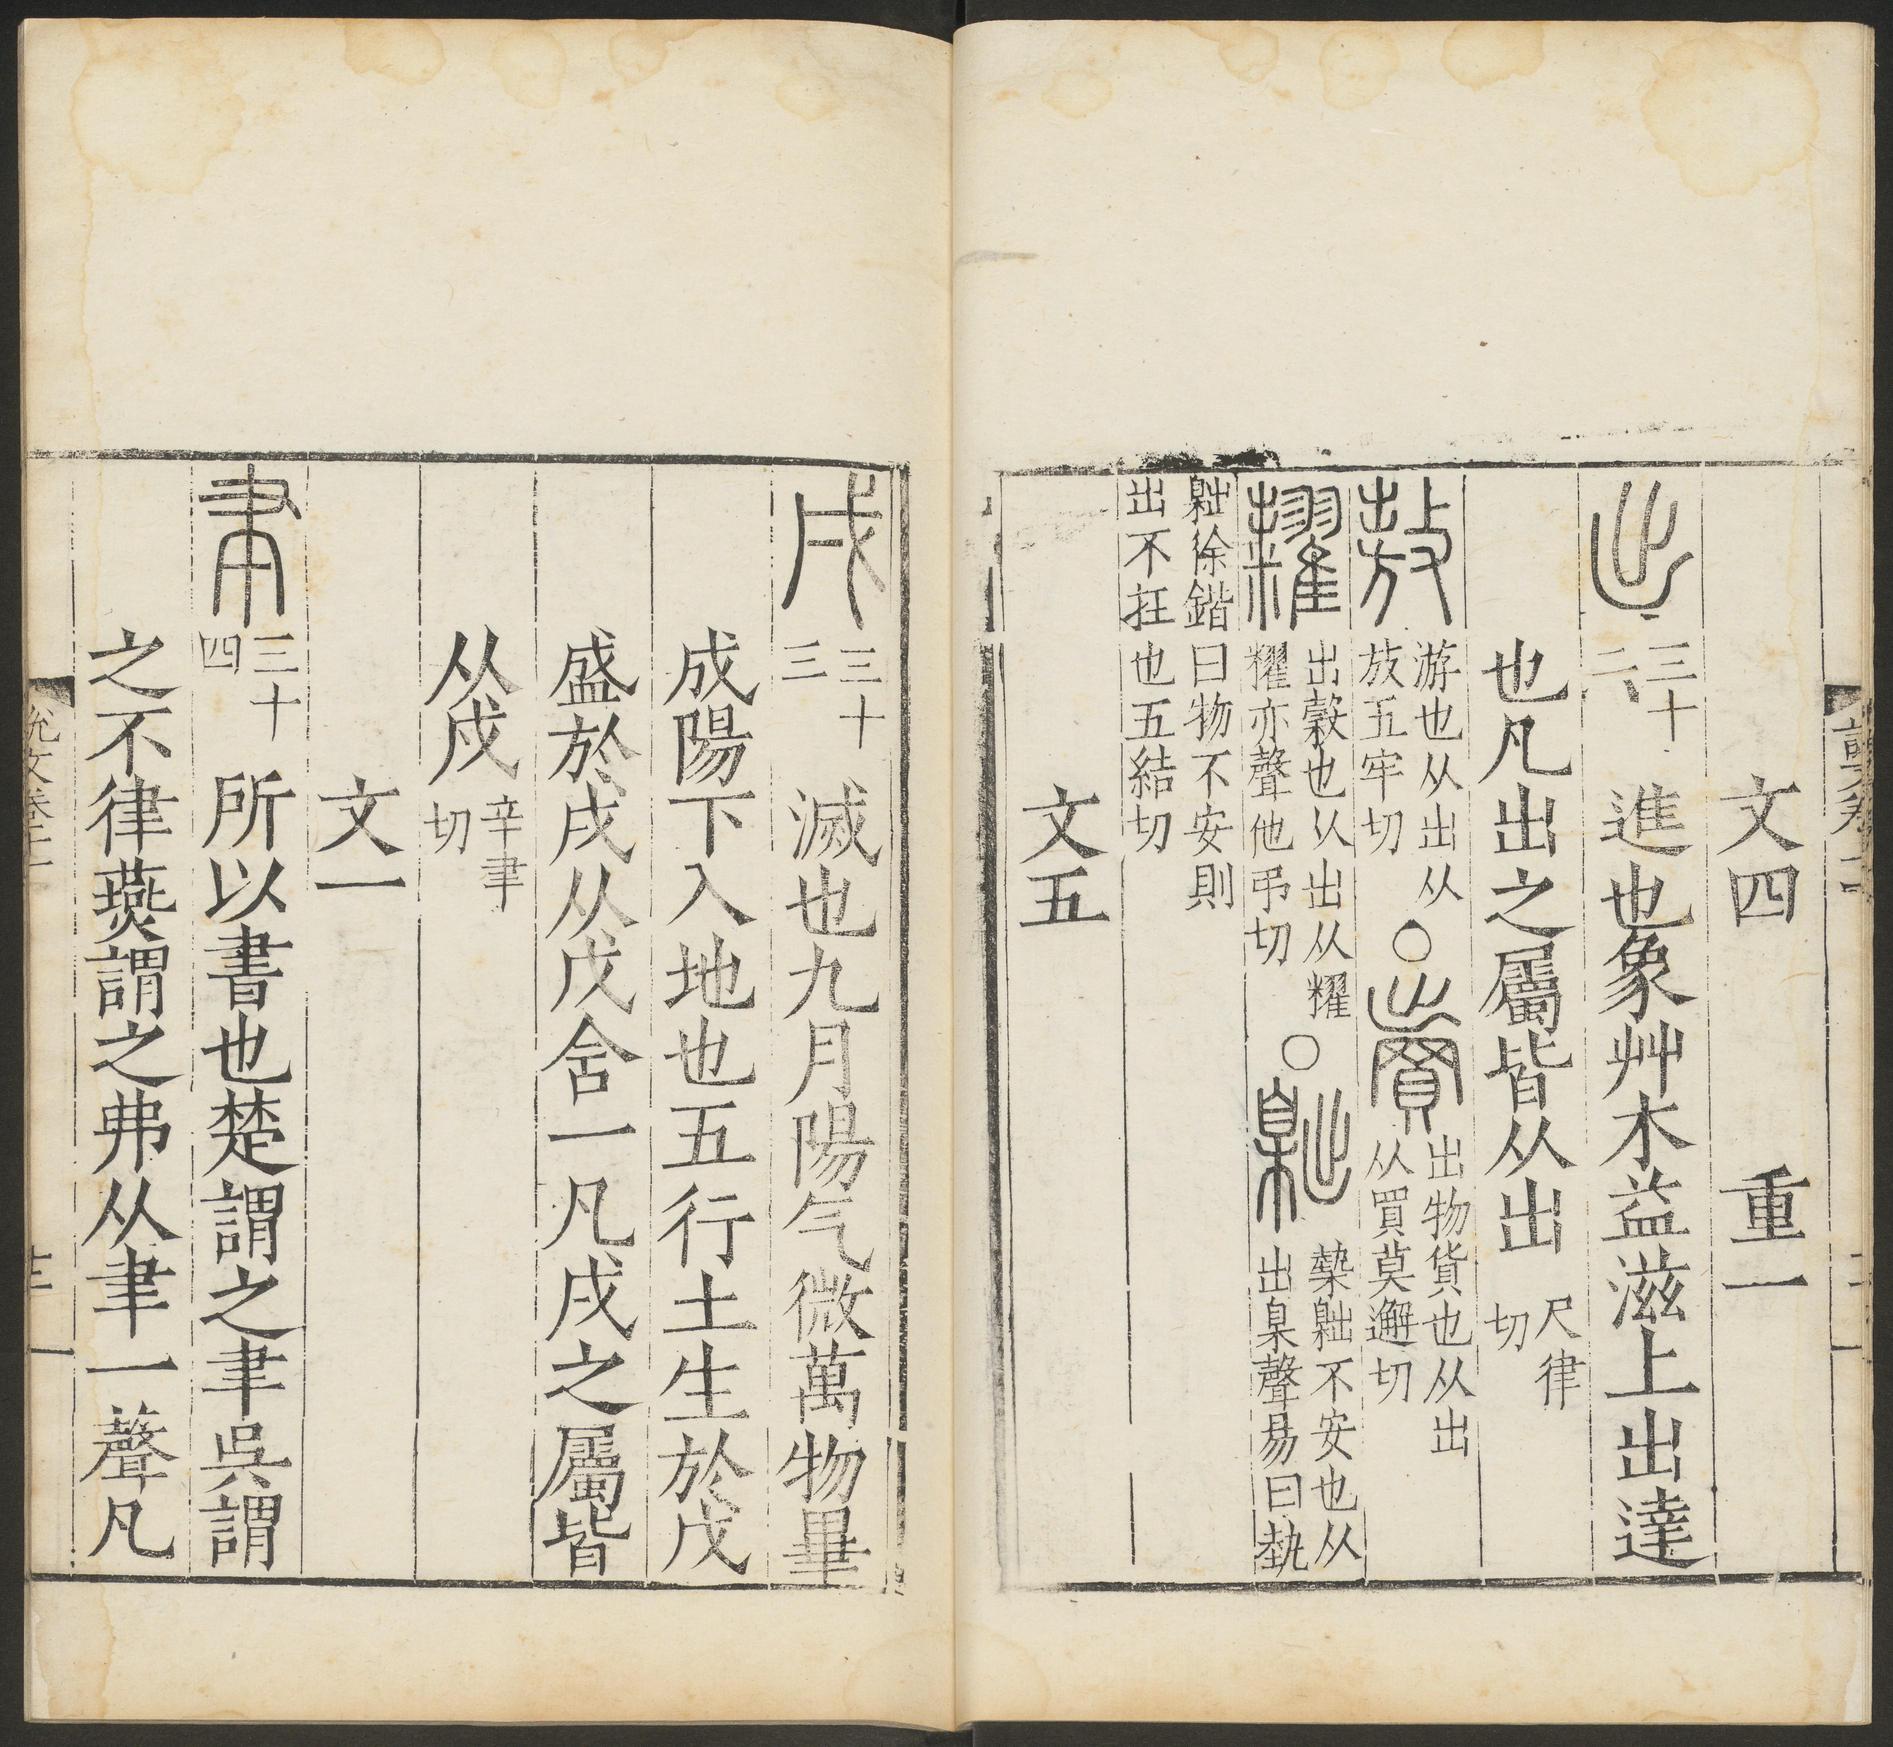 文四　重一
出 三十二 進也象艸木益滋上出達
也凡出之屬皆从出 尺律切
敖 游也从出从放五牢切 〇 賣 出物貨也从出从買莫邂切
糶 出穀也从出从糴糴亦聲他弔切 〇 𣎴 槷䵳不安也从出臬聲易曰槷
䵳徐鍇曰物不安則出不在也五結切
文五
戌 三十三 滅也九月陽气微萬物畢
成陽下入地也五行土生於戊
盛於戌从戊含一凡戌之屬皆
从戌 辛聿切
文一
聿 三十四 所以書也楚謂之聿吳謂
之不律燕謂之弗从聿一聲凡